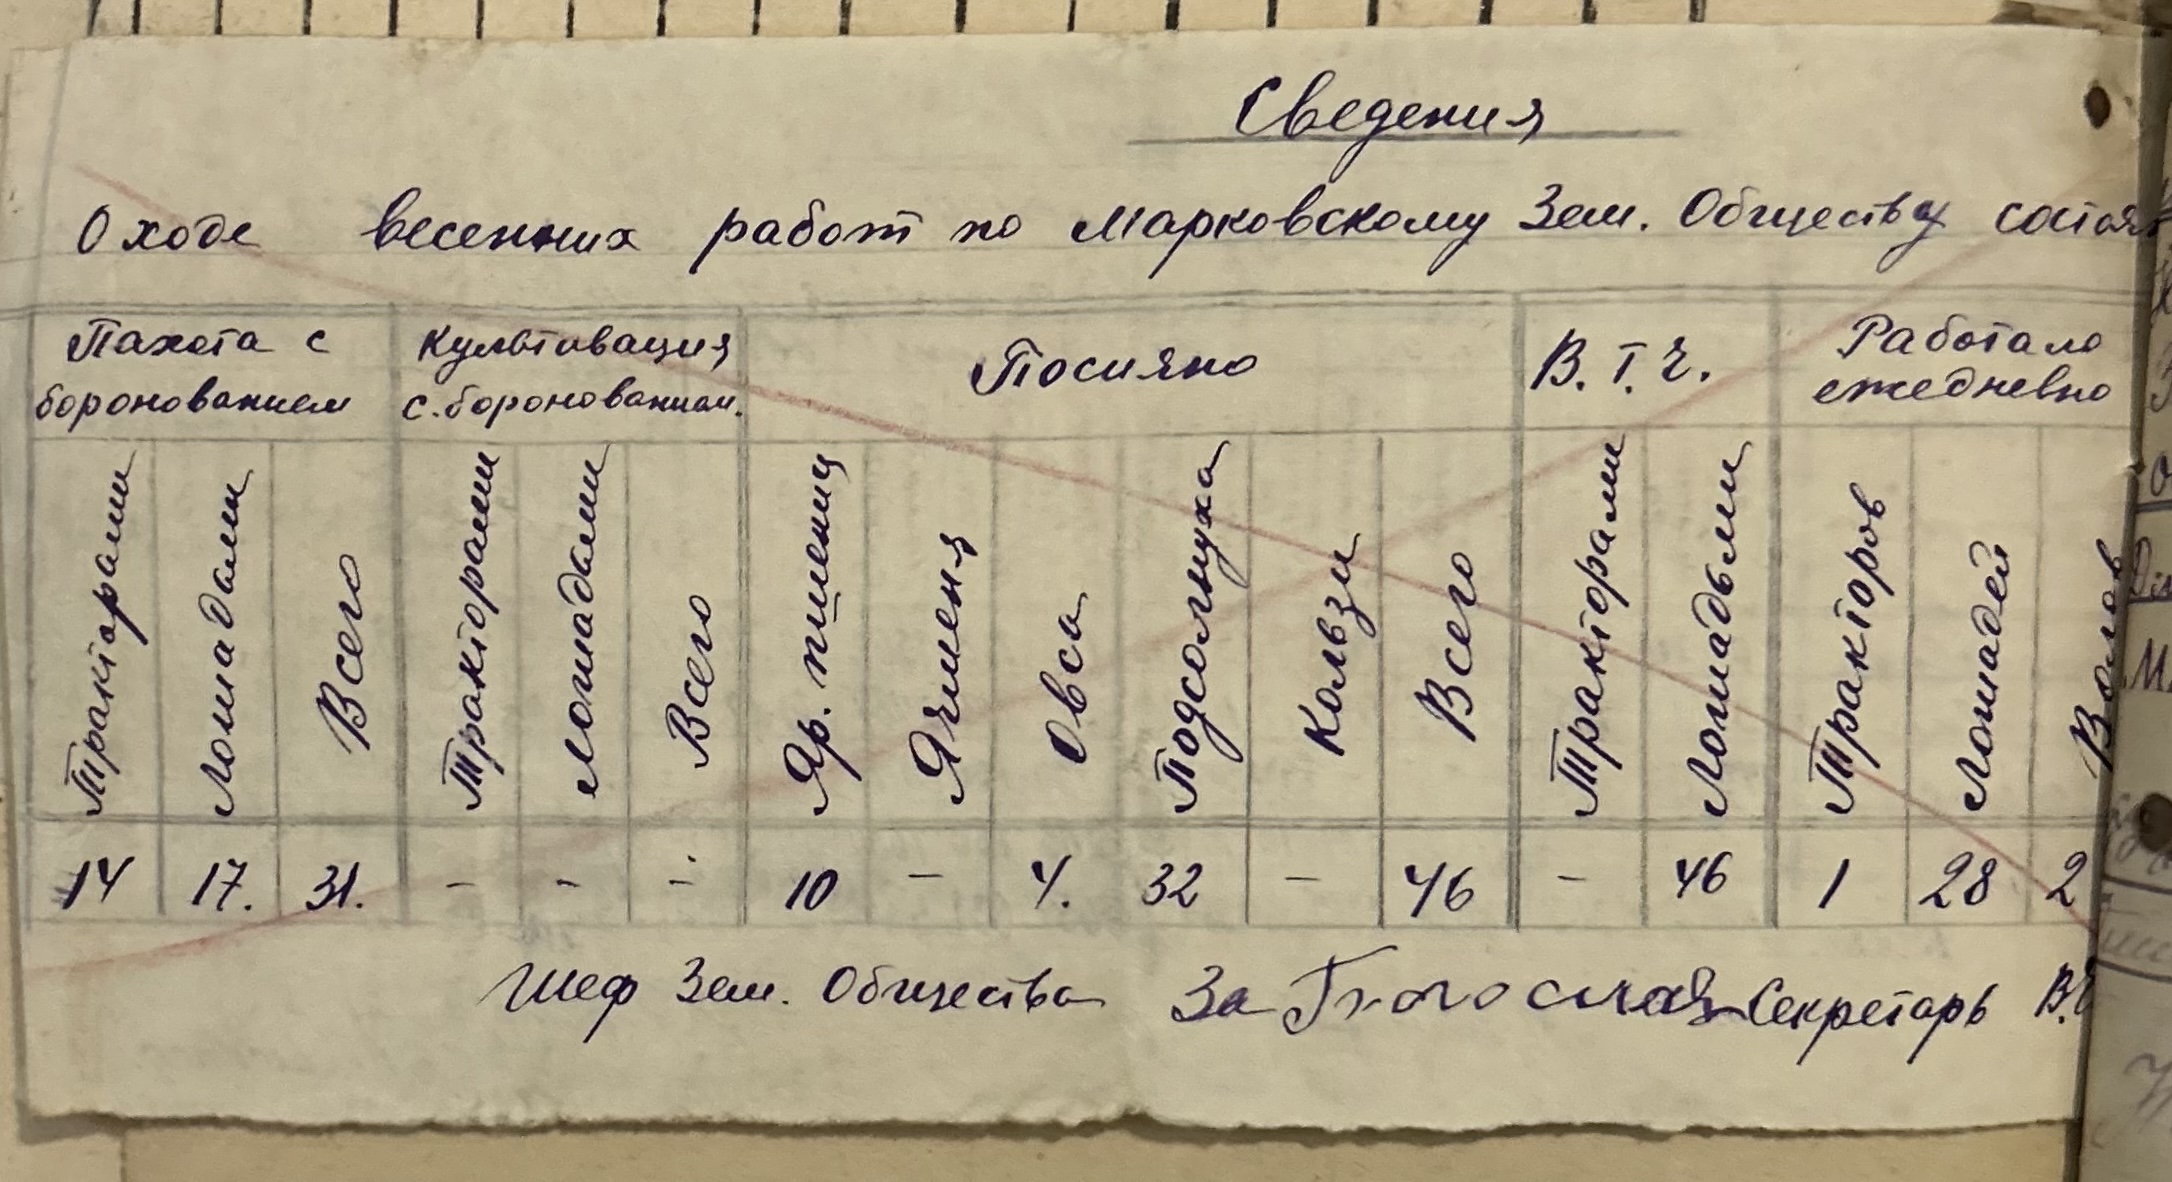 Сведения
О ходе весенних работ по Марковскому Зем. Обществу
Пахота с боронованием
Культивация с. боронованием.
Посияно
В. Т. Ч.
Работало ежедневно
Тракторами
Лошадами
Всего
Тракторами
Лошадами
Всего
Яр. пшениц
Ячменя
Овса
Подсолнуха
Кользи
Всего
Тракторами
Лошадьми
Тракторов
Лошадей
Волов
14 17. 31. - - - 10 - 4. 32 - 46 - 46 1 28 2
Шеф Зем. Общества За Секретарь